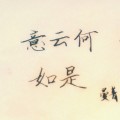 意云何
如是